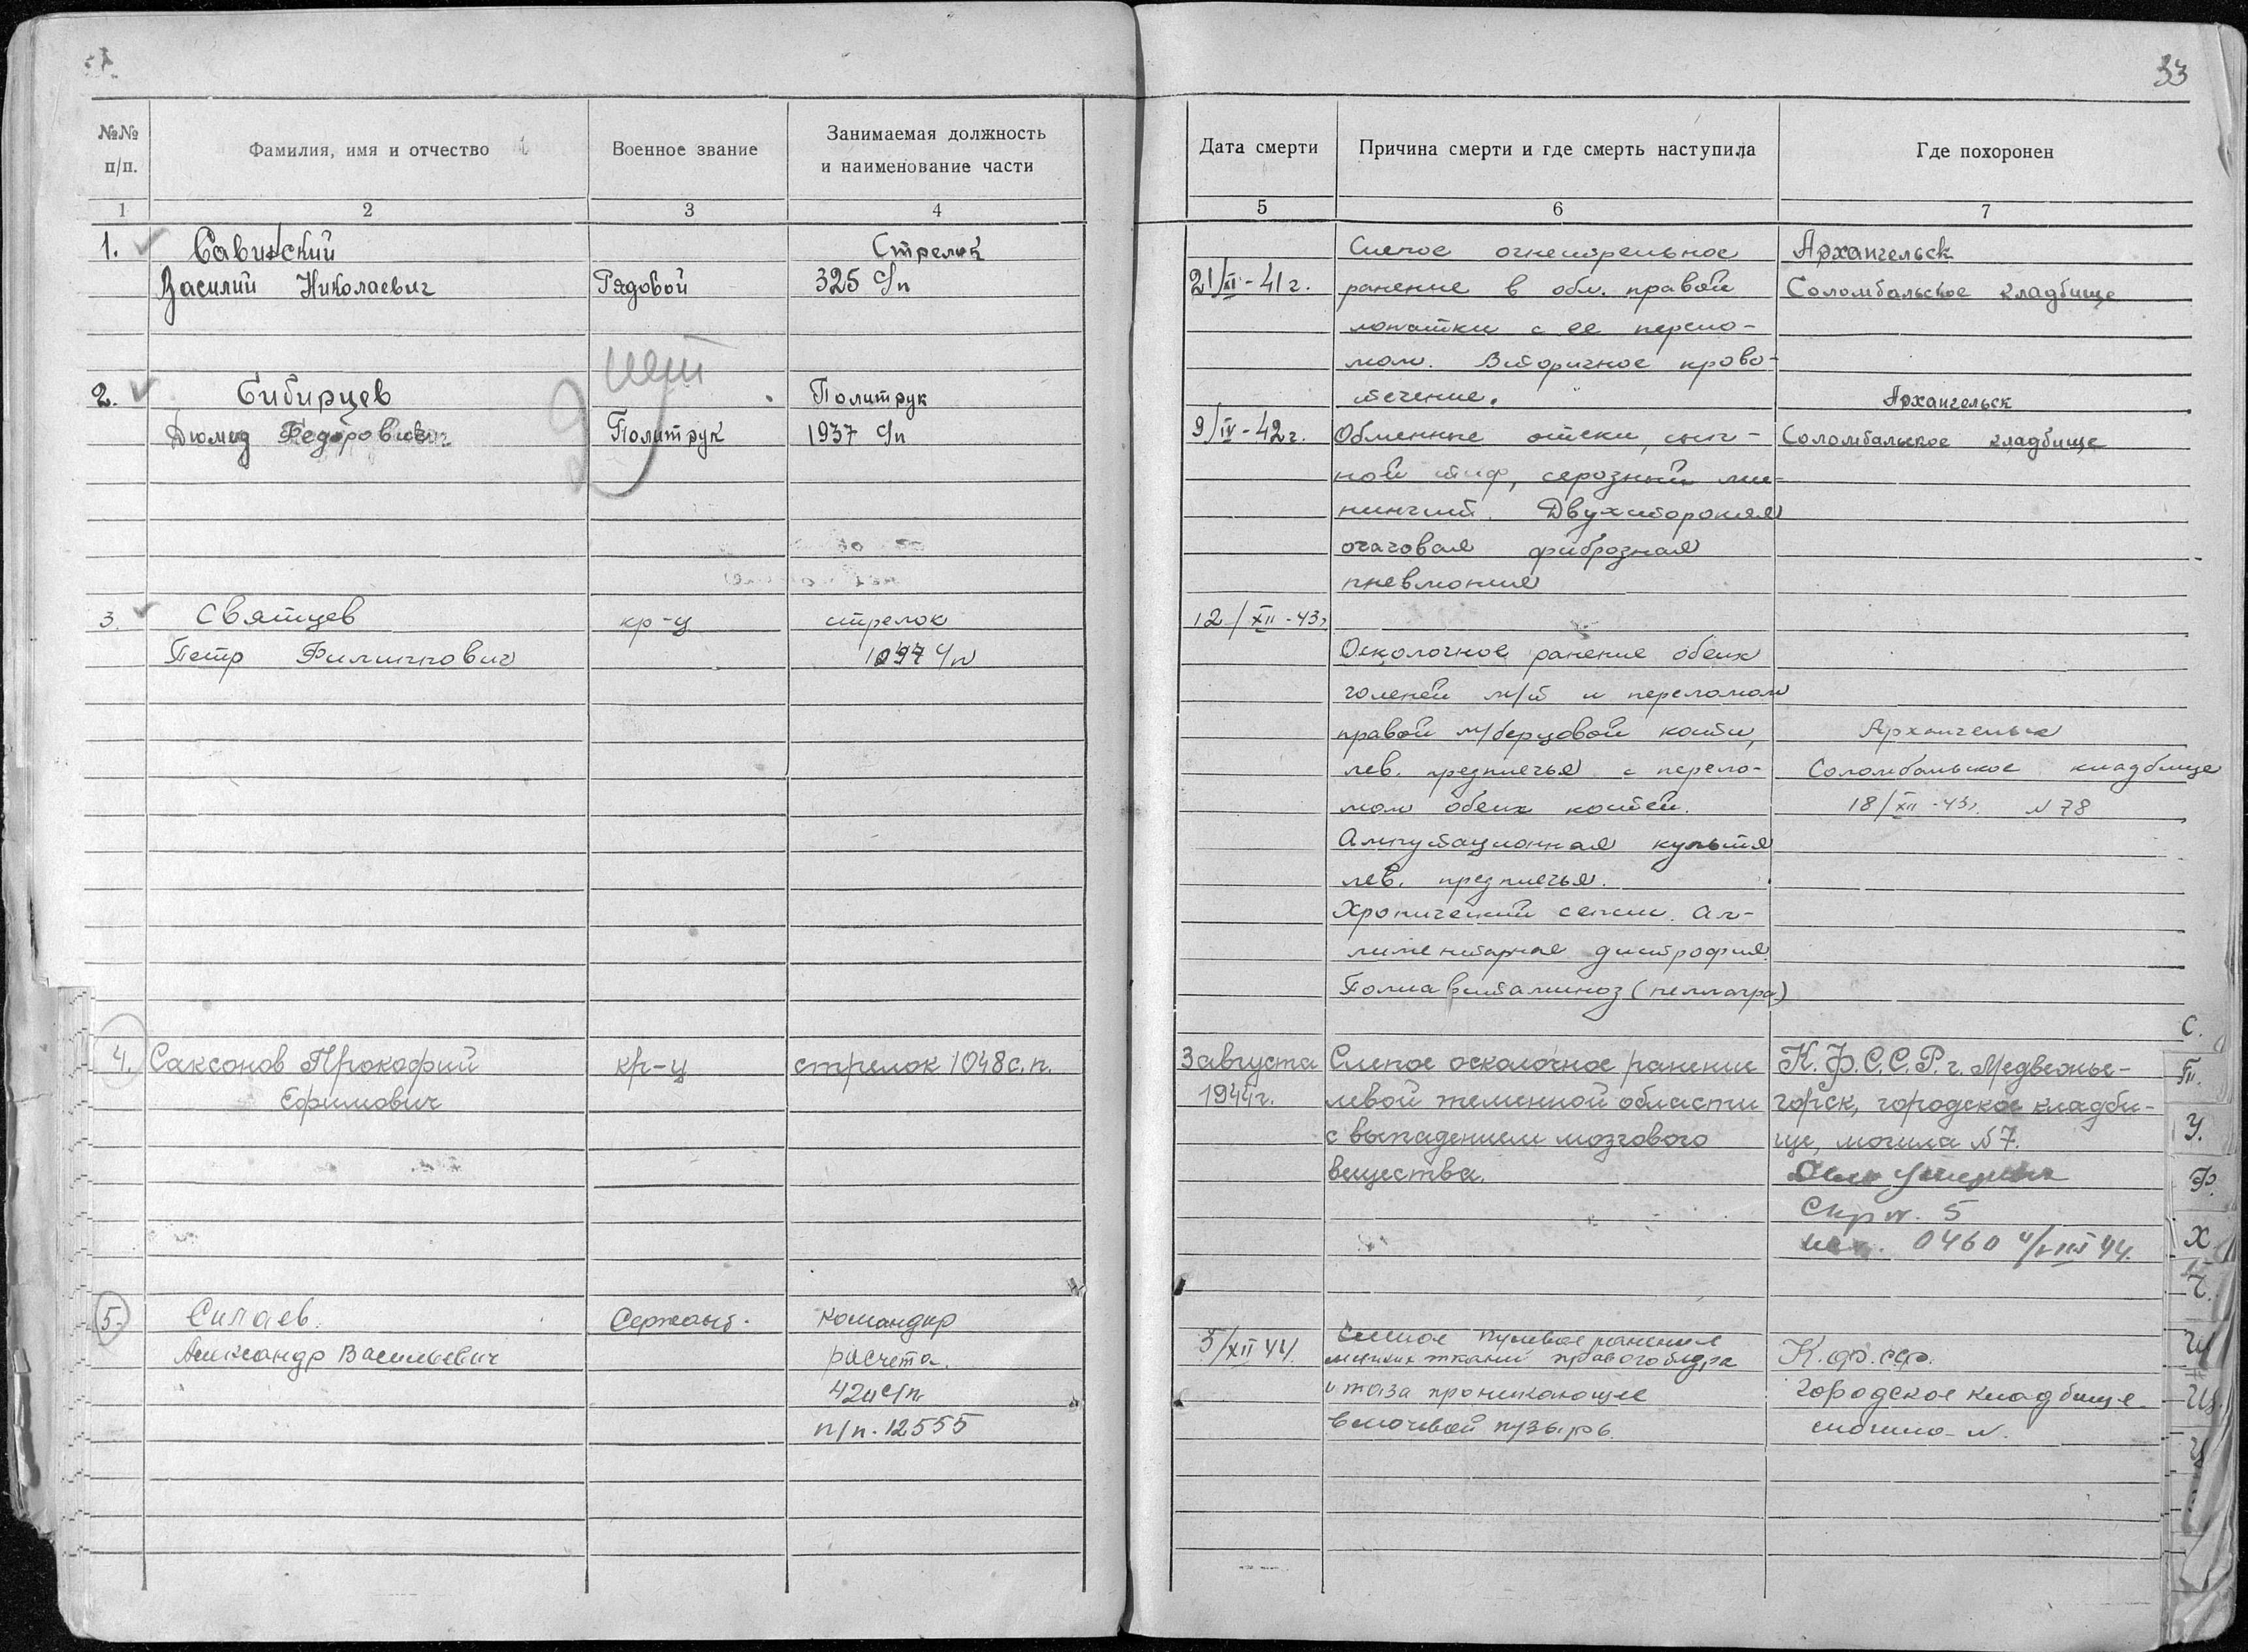 33
№№ п/п.
Фамилия, имя и отчество
Военное звание
Занимаемая должность
и наименование части
Дата смерти
Причина смерти и где смерть наступила
Где похоронен
1 2 3 4 5 6 7
1. Савинский
Василий Николаевич
Рядовой
Стрелок
325 с/п
21/XI-41г.
Слепое огнестрельное
ранение в обл. правой
лопатки с ее перело-
мом. Вторичное крово-
течение.
Архангельск
Соломбальское кладбище
нет
2. Сибирцев
Диомид Федорович
Политрук
Политрук
1937 с/п
9/IV-42г.
Обменные отеки, сып-
ной тиф, серозный ме-
нингит. Двухстороняя
очаговая фиброзная
пневмония
Архангельск
Соломбальское кладбище
3. Святцев
Петр Филиппович
кр-ц
стрелок
1097 с/п
12/XII-43г
Осколочное ранение обеих
голеней м/т и переломом
правой м/берцовой кости,
лев. предплечья с перело-
мом обеих костей.
Ампутационная культя
лев. предплечья.
Хронический сепсис. Ал-
лиментарная дистрофия
Полиавитаминоз (пеллагра)
Архангельск
Соломбальское кладбище
18/XII-43г. N 78
4. Саксонов Прокофий
Ефимович
кр-ц
стрелок 1048 с.п.
3 августа
1944г.
Слепое осколочное ранение
левой теменной области
с выпадением мозгового
вещества.
К.Ф.С.С.Р. г. Медвежье-
горск, городское кладби-
ще, могила N 7.
5
0460
5. Силаев.
Александр Васильевич
Сержант.
командир
расчета.
п/п. 12555
5/XII 44.
Слепое пулевое ранение
мягких ткани правого бедра
и таза проникающее
в мочевой пузырь.
К.ф.сср.
городское кладбище
N.
С.
Т.
У.
Ф.
Х
Ч.